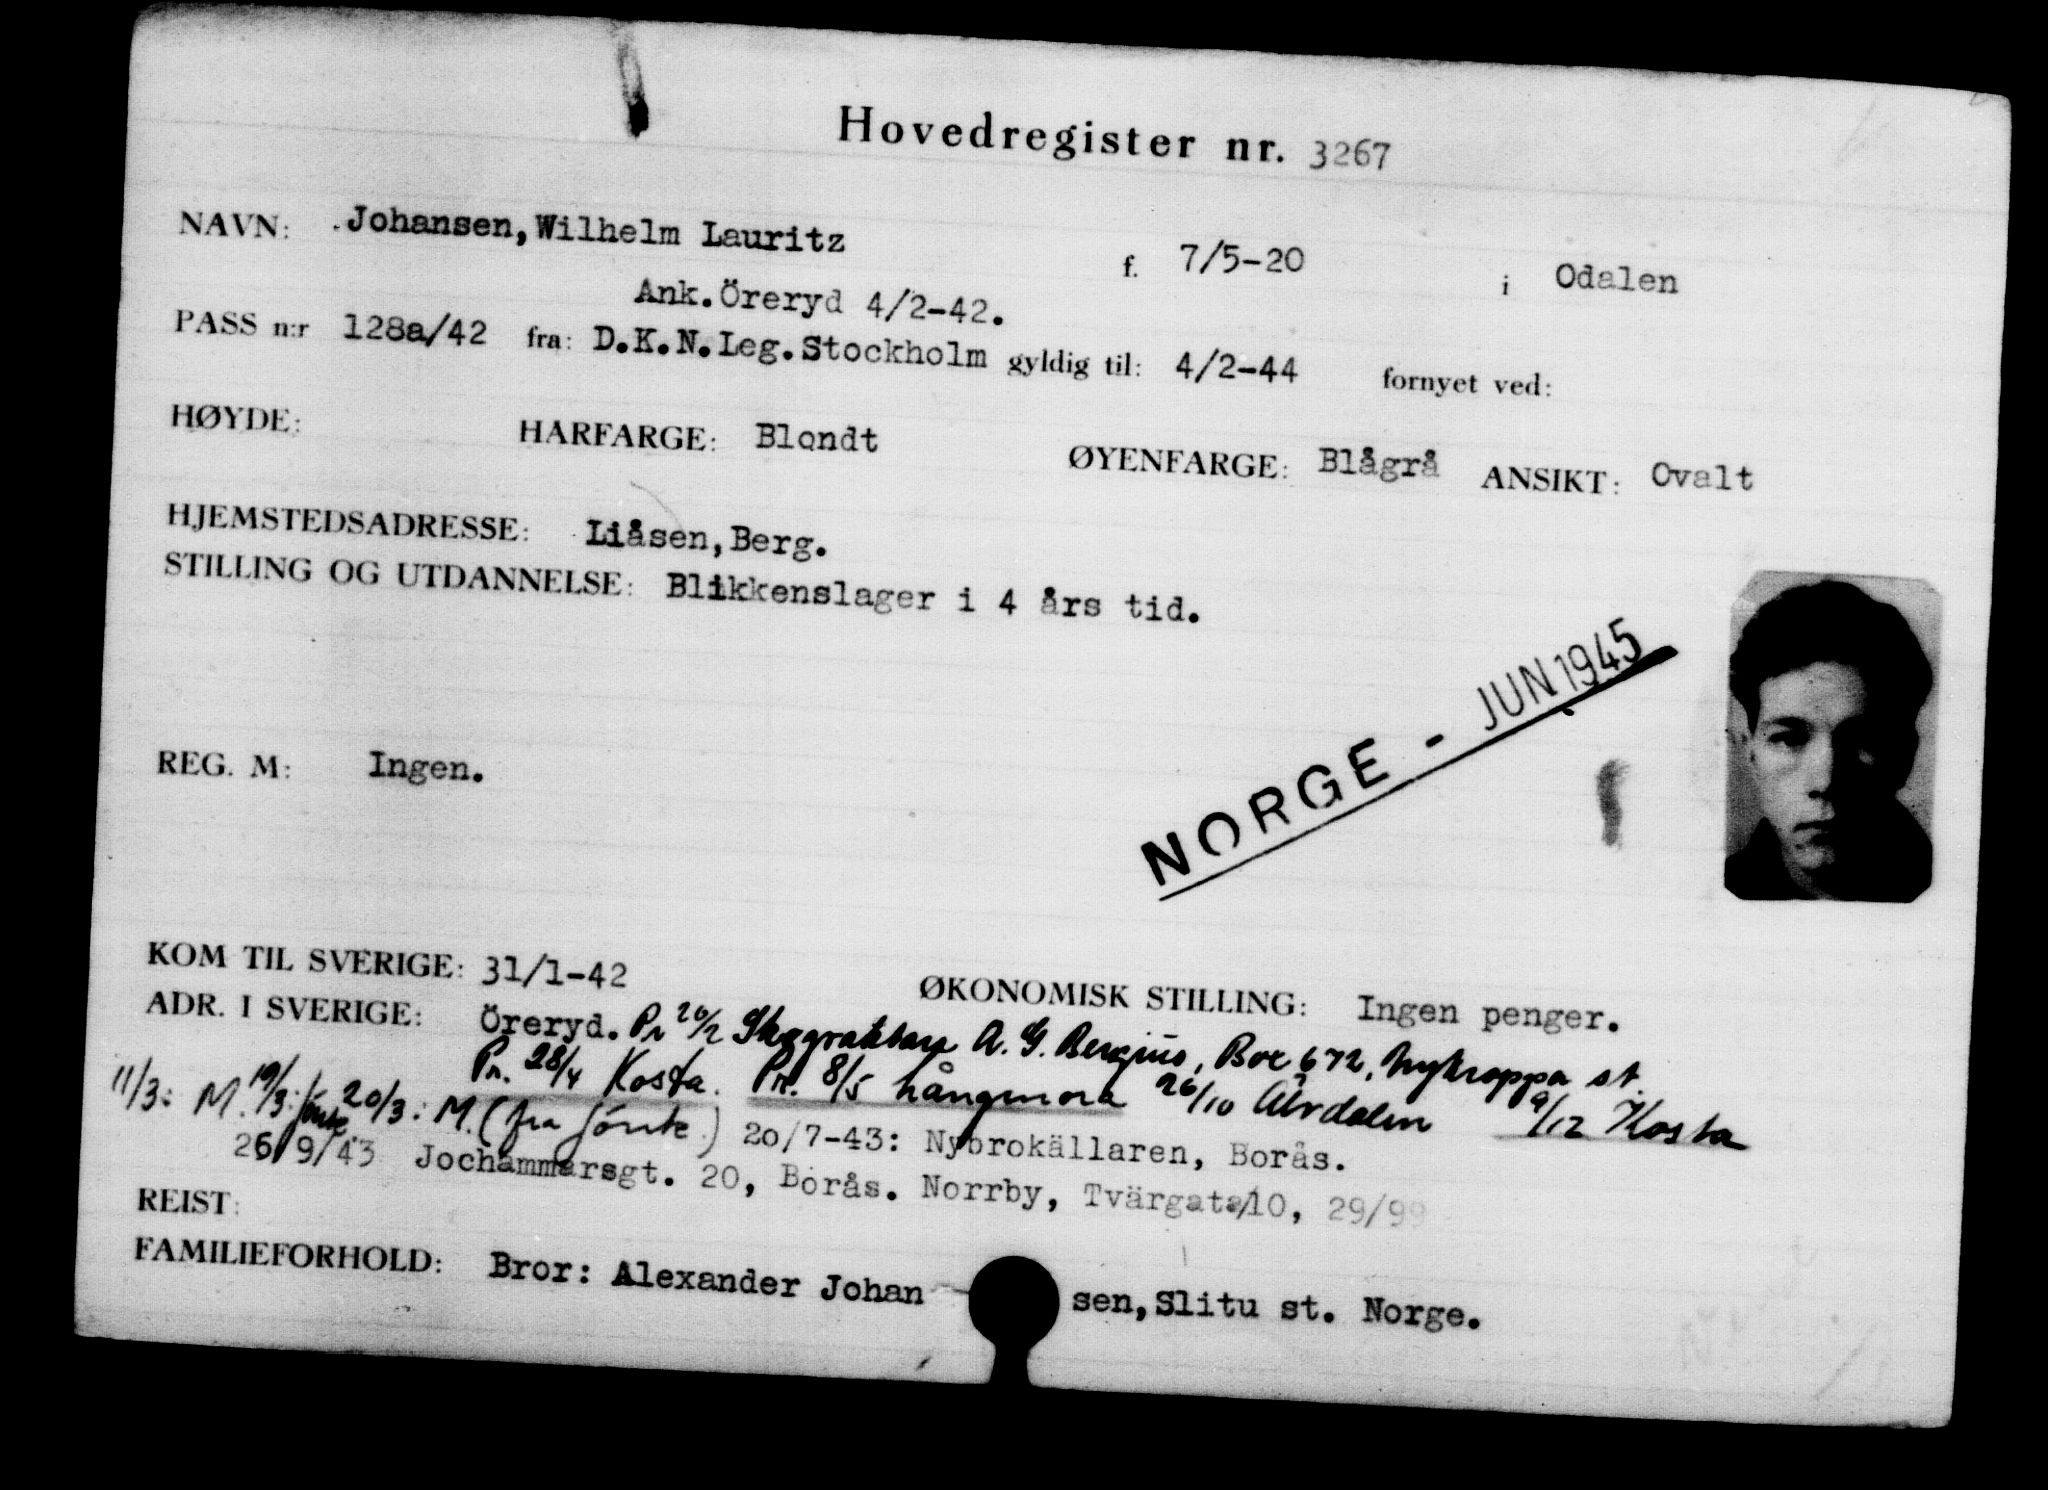 Hovedregister nr. 3267
NAVN: Johansen, Wilhelm Lauritz f. 7/5-20 i Odalen
Ank. Öreryd 4/2-42.
PASS n:r 128a/42 fra: D.K.N.Leg.Stockholm gyldig til: 4/2-44 fornyet ved:
HØYDE: HARFARGE: Blondt ØYENFARGE: Blågrå ANSIKT: Ovalt
HJEMSTEDSADRESSE: Liåsen, Berg.
STILLING OG UTDANNELSE: Blikkenslager i 4 års tid.
NORGE - JUN 1945
REG. M: Ingen.
KOM TIL SVERIGE: 31/1-42 ØKONOMISK STILLING: Ingen penger.
ADR. I SVERIGE: Öreryd. Pr 20/2 A. G. Bergius, Box 672, Nykroppa st.
Pr. 28/4 Kosta. Pr. 8/5 Långmora 26/10 Älvdalen 9/12 Kosta
11/3: M. 19/3: Jönk. 20/3: M. (fra Jönk.) 20/7-43: Nybrokällaren, Borås.
26/9/43 Jochammarsgt. 20, Borås. Norrby, Tvärgata 10, 29/99
REIST:
FAMILIEFORHOLD: Bror: Alexander Johan sen, Slitu st. Norge.